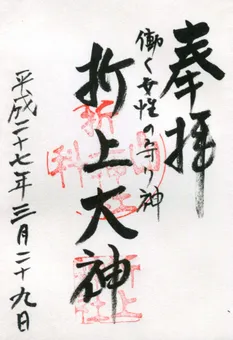 奉拝
働く女性の守り神
折上大神
平成二十七年三月二十九日